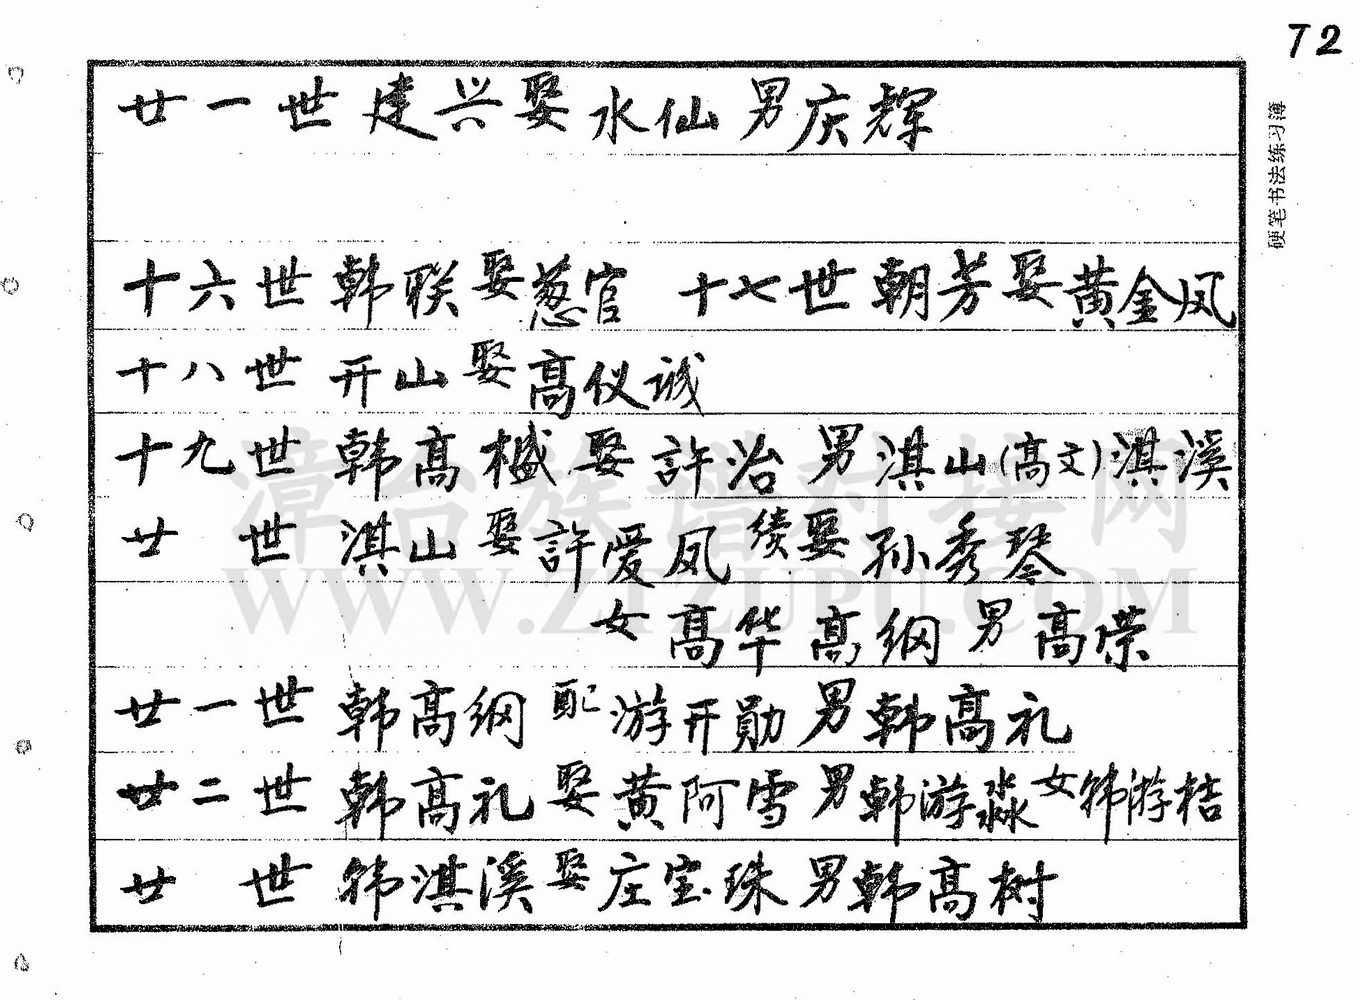 72
硬笔书法练习簿
廿一世 建兴 娶 水仙 男 庆辉
十六世 韩联 娶 葱官 十七世 朝芳 娶 黄金凤
十八世 开山 娶 高仪诚
十九世 韩高樾 娶 許治 男 淇山(高文)淇溪
廿 世 淇山 娶 許爱凤 续娶 孙秀琴
女 高华 高纲 男 高荣
廿一世 韩高纲 配 游开勋 男 韩高礼
廿二世 韩高礼 娶 黄阿雪 男 韩游淼 女 韩游桔
廿 世 韩淇溪 娶 庄宝珠 男 韩高树
漳台族谱对接网
WWW.ZTZUPU.COM